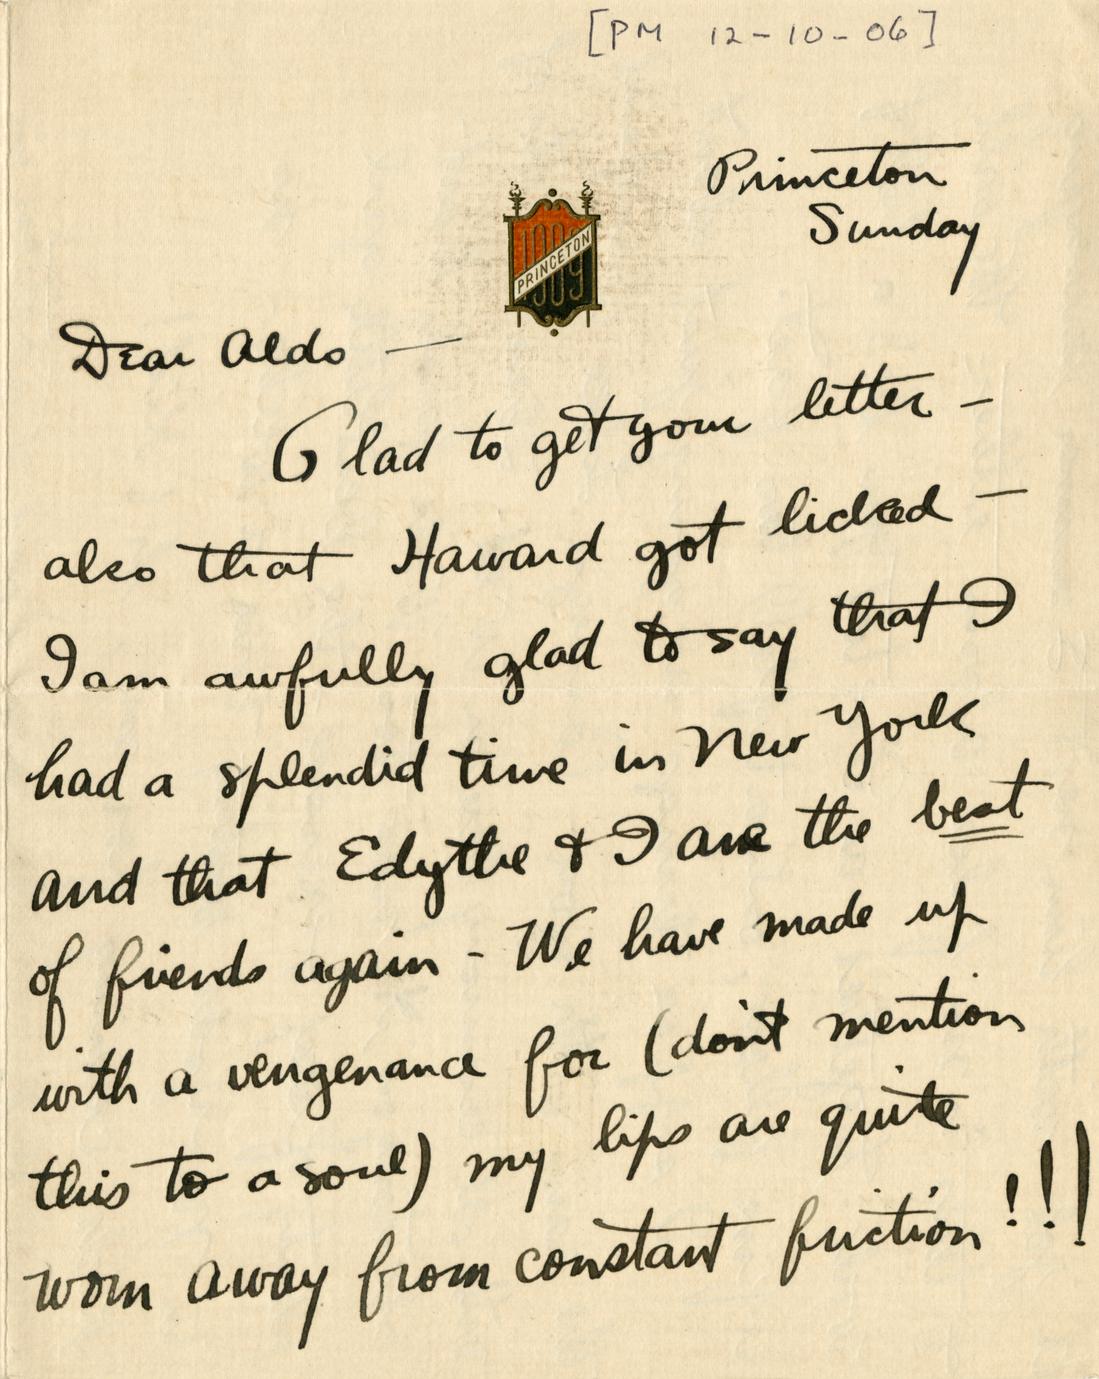 [PM 12-10-06]
Princeton
Sunday
1909
PRINCETON
Dear Aldo —
Glad to get your letter —
also that Harvard got licked —
I am awfully glad to say that I
had a splendid time in New York
and that Edythe & I are the best
of friends again - We have made up
with a vengenance for (don't mention
this to a soul) my lips are quite
worn away from constant friction!!!